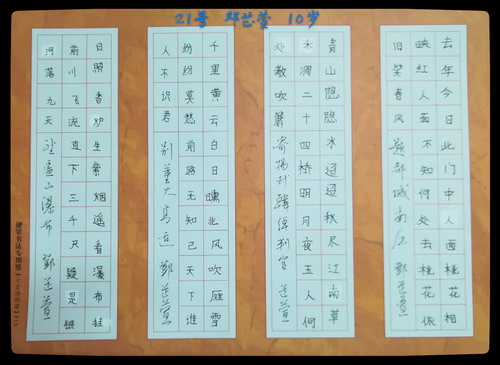 21号 邓芷萱 10岁
去年今日此门中人面桃花相
映红人面不知何处去桃花依
旧笑春风 题都城南庄 邓芷萱
青山隐隐水迢迢秋尽江南草
木凋二十四桥明月夜玉人何
处教吹箫 寄扬州韩绰判官 芷萱
千里黄云白日曛北风吹雁雪
纷纷莫愁前路无知己天下谁
人不识君 别董大 高适 邓芷萱
日照香炉生紫烟遥看瀑布挂
前川飞流直下三千尺疑是银
河落九天 望庐山瀑布 邓芷萱
硬笔书法专用纸